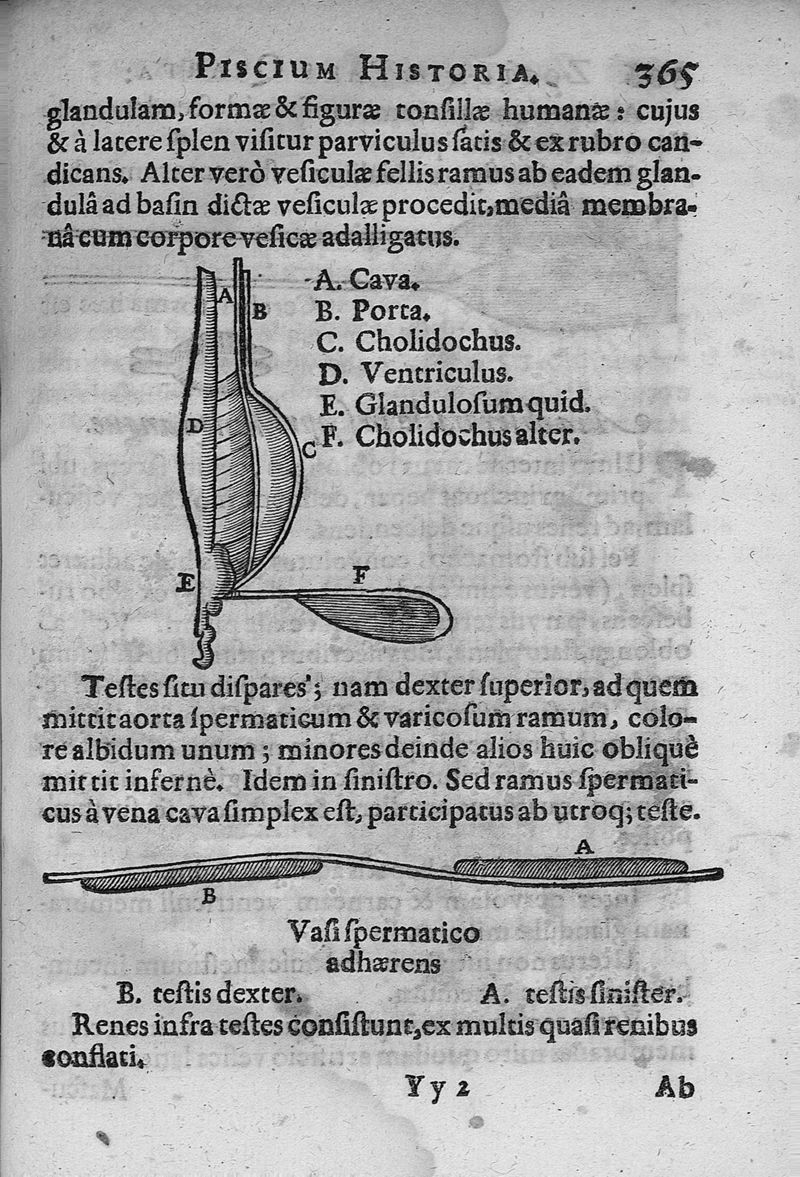 PISCIUM HISTORIA. 365
glandulam, formæ & figuræ tonſillæ humanæ: cujus
& à latere ſplen viſitur parviculus ſatis & ex rubro can-
dicans. Alter verò veſiculæ fellis ramus ab eadem glan-
dulâ ad baſin dictæ veſiculæ procedit, mediâ membra-
nâ cum corpore veſicæ adalligatus.
A
B
C
D
E
F
A. Cava.
B. Porta.
C. Cholidochus.
D. Ventriculus.
E. Glanduloſum quid.
F. Cholidochus alter.
Teſtes ſitu diſpares; nam dexter ſuperior, ad quem
mittit aorta ſpermaticum & varicoſum ramum, colo-
re albidum unum; minores deinde alios huic obliquè
mittit infernè. Idem in ſiniſtro. Sed ramus ſpermati-
cus à vena cava ſimplex eſt, participatus ab utroq; teſte.
A
B
Vaſi ſpermatico
adhærens
B. teſtis dexter. A. teſtis ſiniſter.
Renes infra teſtes conſiſtunt, ex multis quaſi renibus
conflati.
Yy 2 Ab